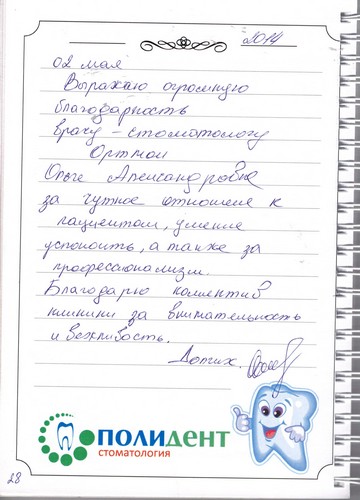 2014
02 мая
Выражаю огромную
благодарность
врачу - стоматологу
Ортман
Ольге Александровне
за чуткое отношение к
пациентам, умение
успокоить, а также за
профессионализм.
Благодарю коллектив
клиники за внимательность
и вежливость.
ПОЛИДЕНТ
СТОМАТОЛОГИЯ
28